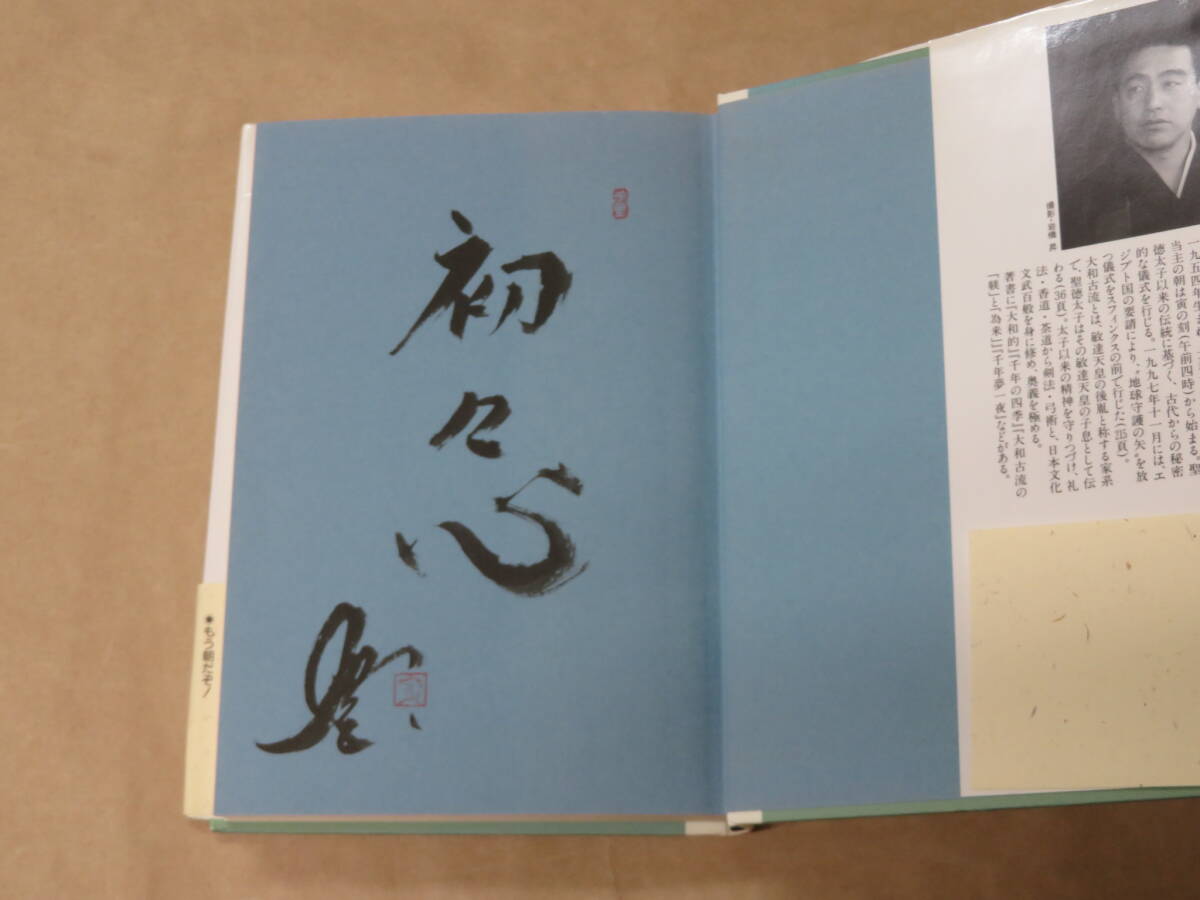 撮影・岩橋 昇
一九五四年生まれ
当主の朝は寅の刻(午前四時)から始まる。聖
徳太子以来の伝統に基づく、古代からの秘密
的な儀式を行じる。一九九七年十一月には、エ
ジプト国の要請により、"地球守護の矢"を放
つ儀式をスフィンクスの前で行じた(215頁)。
大和古流とは、敏達天皇の後胤と称する家系
で、聖徳太子はその敏達天皇の子息として伝
わる(36頁)。太子以来の精神を守りつづけ、礼
法・香道・茶道から剣法・弓術と、日本文化
文武百般を身に修め、奥義を極める。
著書に『大和的』『千年の四季』『大和古流の
『躾』と『為来』』『千年夢一夜』などがある。
初々心
●もう朝だぞ!